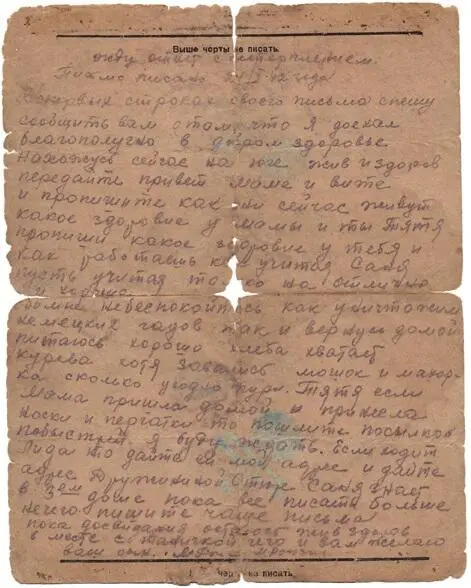 Выше черты не писать.
жду ответ с нетерплением.
Писмо писано
Впервых строках своего письма спешу
сообщить вам о том, что я доехал
благополучно в добром здоровье
Нахожусь сейчас на юге жив и здоров
передайте привет маме и Вите
и пропишите как они сейчас живут
какое здоровие у мамы и ты Тятя
пропиши какое здоровие у тебя и
как работаеш как учится Саня
пусть учится только на отлично
и хорошо
Обомне небеспокойтесь как уничтожим
немецких гадов так и вернусь домой
питаюсь хорошо хлеба хватает
курева хотя завались мошок и махор-
ка сколько угодно кури. Тятя если
Мама пришла домой и принесла
носки и перчатки то пошлите посылкой
побыстрей я буду ждать. Если ходит
Лида то дайте ей мой адрес и дайте
адрес Дружининой Саня знает
в доме пока все писать больше
нечего пишите чаще письма
пока досвидания остаюсь жив здоров
в месте с и вам желаю
ваш сын.
черты не писать.